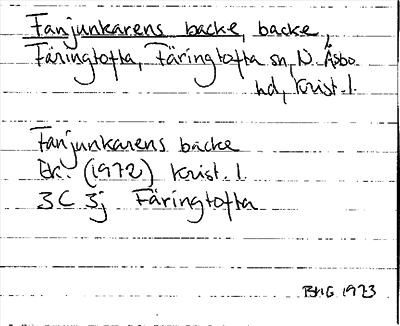 Fanjunkarens backe, backe,
Färingtofta, Färingtofta sn, N. Åsbo
hd, Krist. l.
Fanjunkarens backe
Ek. (1972) Krist. l.
3C 3j Färingtofta
1973